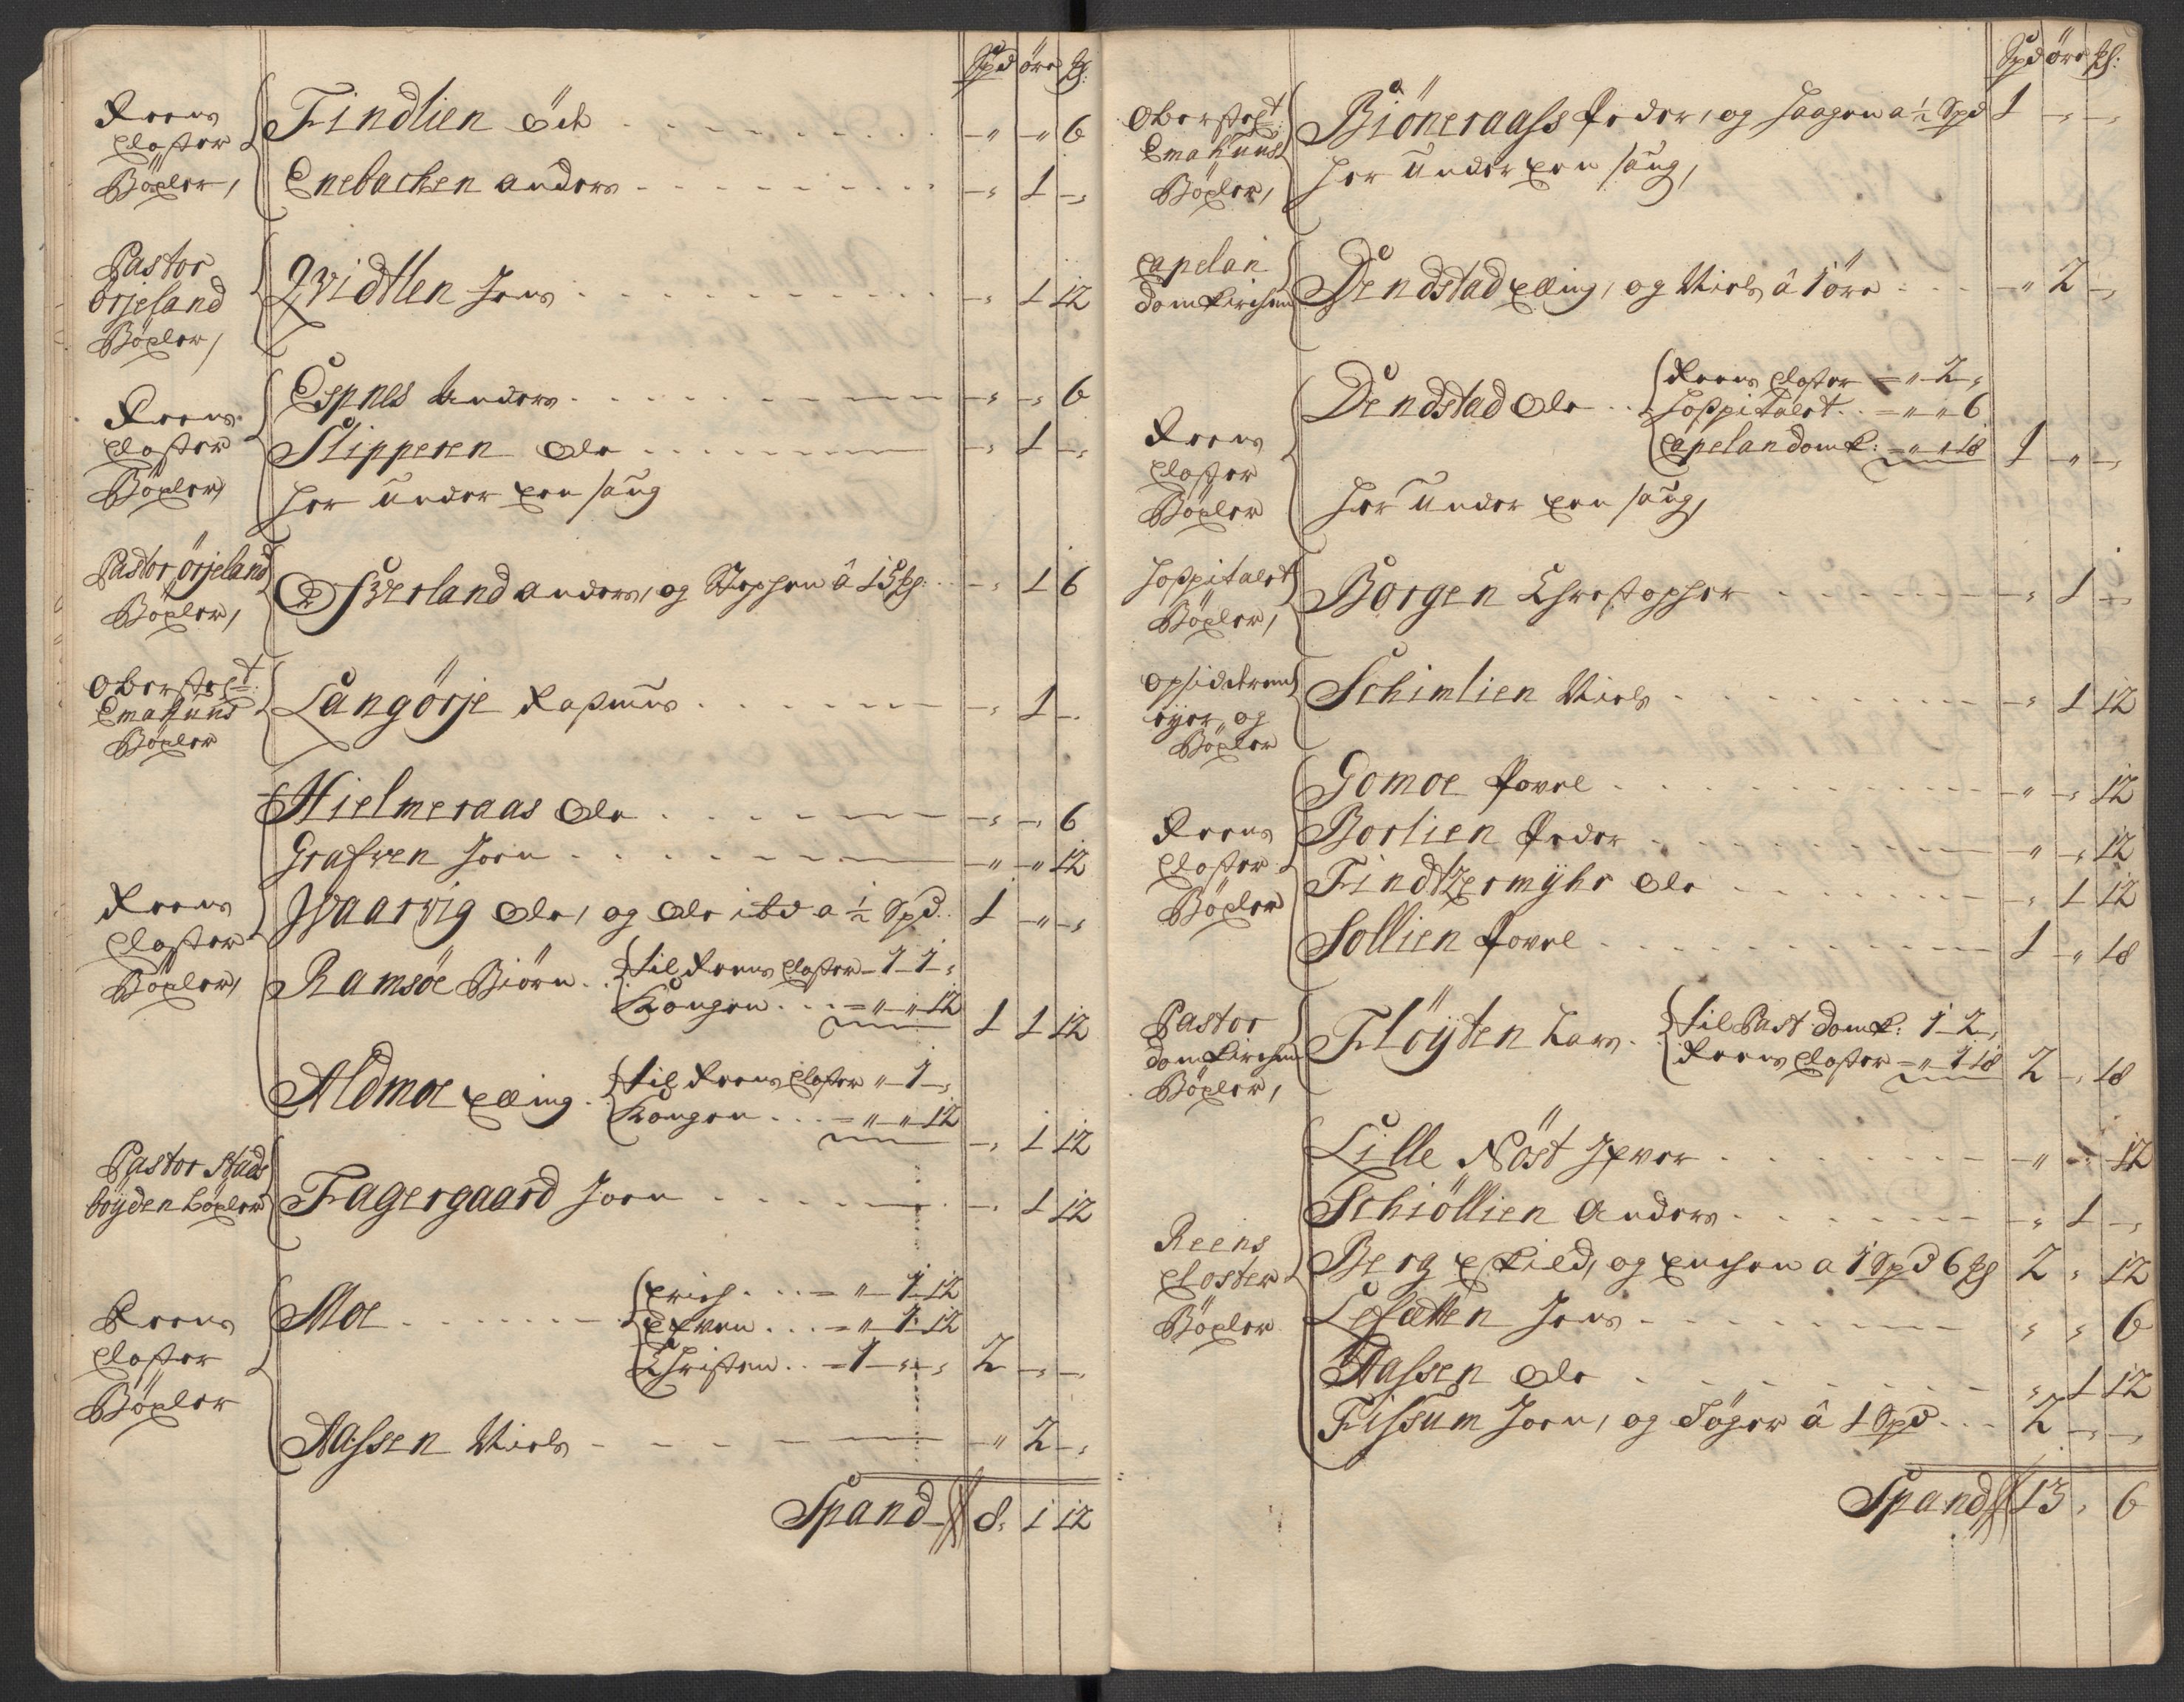 Spd öre
Reens
Closter
Böxler,
Findlien Öde - - " - " 6
Enebachen Anders - - 1 -
Pastor
Örjeland
Böxler,
Qvidtlen Jens - - 1 12
Reens
Closter
Böxler,
Espnes Anders - - - 6
Slipperen Ole - - 1 -
Her under een saug
Pastor Örjeland
Böxler,
Anders, og Stephen â 15 - 1 6
Oberstel:
Böxler
Langörje Rasmus - - 1 -
Hielmeraas Ole - - - 6
Grafven Joen - " - " 12
Reens
Closter
Böxler,
Ole, og Ole ibd a ½ Spd 1 - " -
Ramsöe Biörn til Reens Closter - 1 - 1 -
Kongen - " - " 12
1 1 12
Aldmoe Elling til Reens Closter " 1 -
Kongen - " - " 12
- 1 12
Pastor Stads
böyden Böxler
Fagergaard Joen - - 1 12
Reens
Closter
Böxler
Moe Erich - " - 1 - 12
Even - " 1 - 12
Christen - 1 - - 2 - -
Aassen Niels - " 2 -
Spand 8 1 12
Spd öre
Oberstel:
Böxler,
Biöneraass Peder, og Haagen a ½ Spd 1 - -
Her under een saug,
Capelan
Domkirchen
Dendstad Elling, og Niels â 1 öre - " 2 -
Reens
Closter
Böxler
Dendstad Ole Reens Closter - " 2 -
Hospitalet - " " 6
Capelan domk: - " " 18 1 - " -
Her under een saug,
Hospitalet
Böxler,
Borgen Christopher - - 1 -
eyer, og
Böxler
Schimlien Niels - - 1 12
Reens
Closter
Böxler
Gomoe Povel - " - 12
Borlien Peder - " - 12
Findtzermÿhr Ole - - 1 12
Sollien Povel 1 - " 18
Pastor
Domkirchen
Böxler,
Flöÿten Lars til Past: Domk: 1 - 2 -
Reens Closter - " 1 18 2 - 18
Reens
Closter
Böxler
Lille Nöst Iver - " - 12
Schiöllien Anders - - 1 -
Berg Eskild, og Enchen a 1 Spd 6 2 - 12
Lefætten Jens - - 6
Aassen Ole - 1 12
Fissum Joen, og Töger â 1 Spd 2 - -
Spand 13 - 6